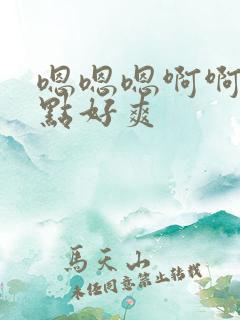 嗯嗯嗯啊啊
點好爽
馬天山
未经同意禁止转载